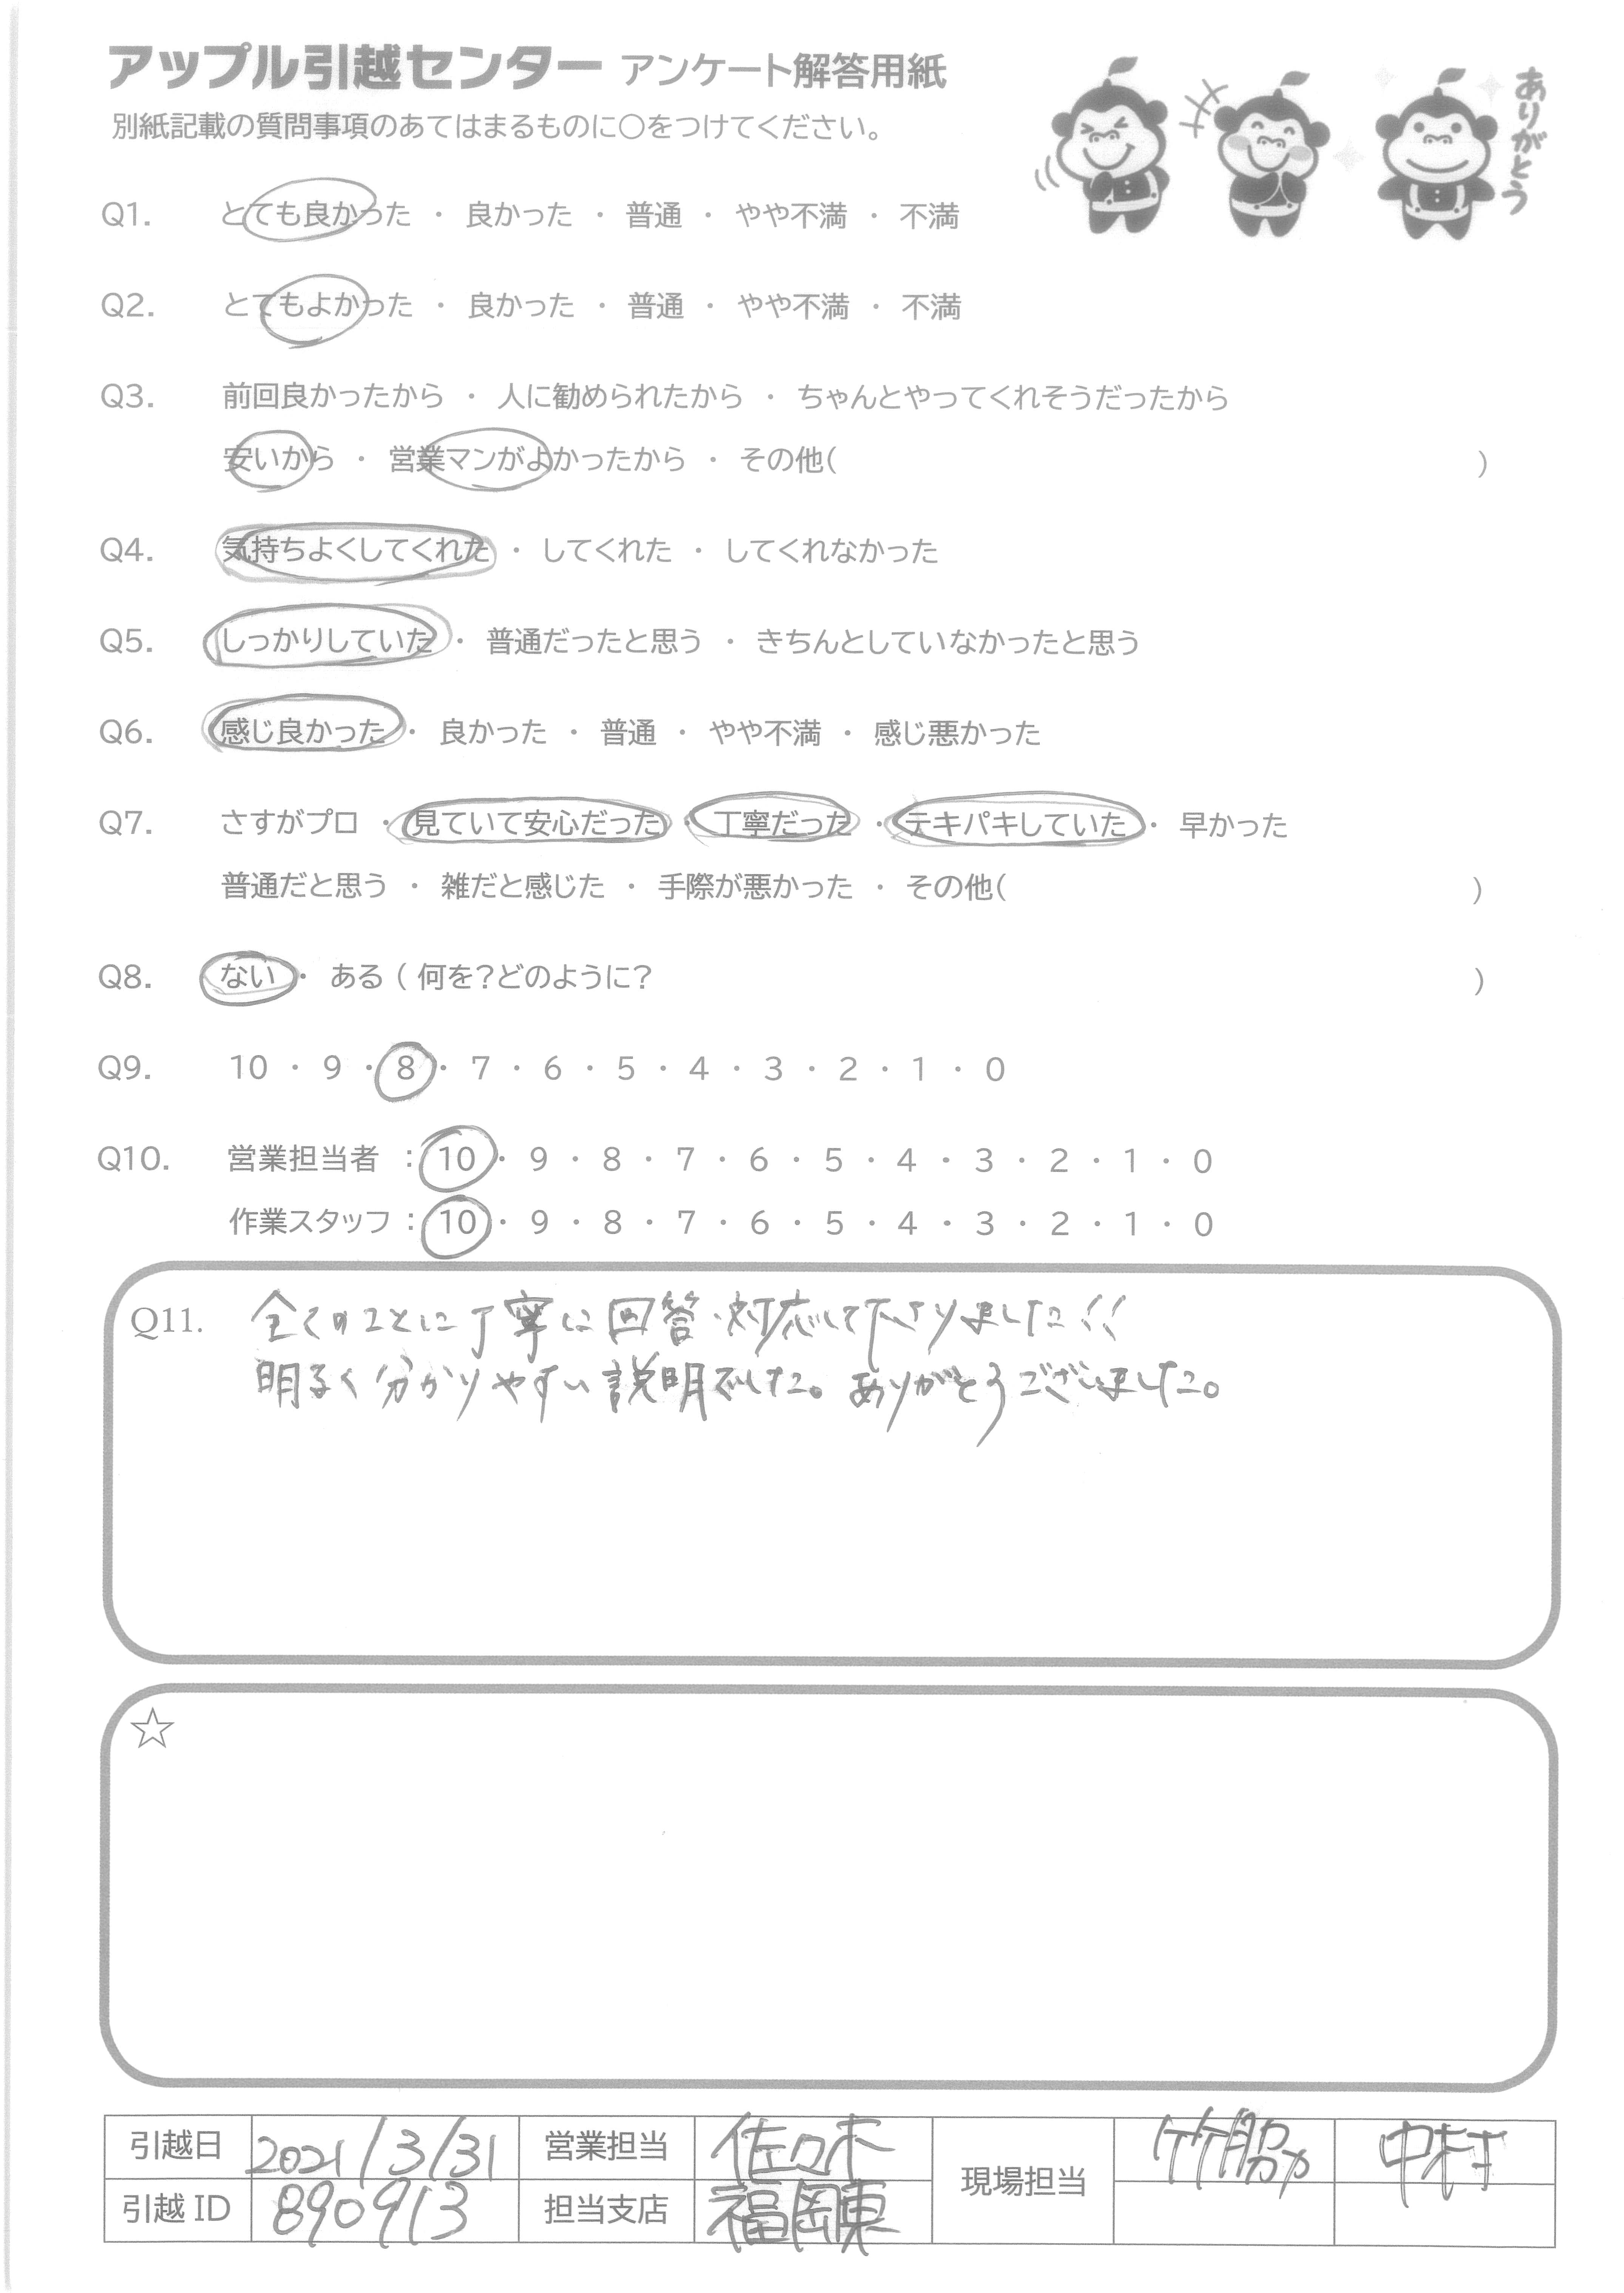 アップル引越センター アンケート解答用紙
別紙記載の質問事項のあてはまるものに○をつけてください。
ありがとう
Q1. とても良かった ・ 良かった ・ 普通 ・ やや不満 ・ 不満
Q2. とてもよかった ・ 良かった ・ 普通 ・ やや不満 ・ 不満
Q3. 前回良かったから ・ 人に勧められたから ・ ちゃんとやってくれそうだったから
安いから ・ 営業マンがよかったから ・ その他( )
Q4. 気持ちよくしてくれた ・ してくれた ・ してくれなかった
Q5. しっかりしていた ・ 普通だったと思う ・ きちんとしていなかったと思う
Q6. 感じ良かった ・ 良かった ・ 普通 ・ やや不満 ・ 感じ悪かった
Q7. さすがプロ ・ 見ていて安心だった ・ 丁寧だった ・ テキパキしていた ・ 早かった
普通だと思う ・ 雑だと感じた ・ 手際が悪かった ・ その他( )
Q8. ない ・ ある ( 何を?どのように? )
Q9. 10 ・ 9 ・ 8 ・ 7 ・ 6 ・ 5 ・ 4 ・ 3 ・ 2 ・ 1 ・ 0
Q10. 営業担当者 : 10 ・ 9 ・ 8 ・ 7 ・ 6 ・ 5 ・ 4 ・ 3 ・ 2 ・ 1 ・ 0
作業スタッフ : 10 ・ 9 ・ 8 ・ 7 ・ 6 ・ 5 ・ 4 ・ 3 ・ 2 ・ 1 ・ 0
Q11. 全てのことに丁寧に回答・対応して下さりました!!
明るく分かりやすい説明でした。ありがとうございました。
☆
引越日 2021/3/31 営業担当 佐々木 現場担当 竹脇 中村
引越ID 890913 担当支店 福岡東